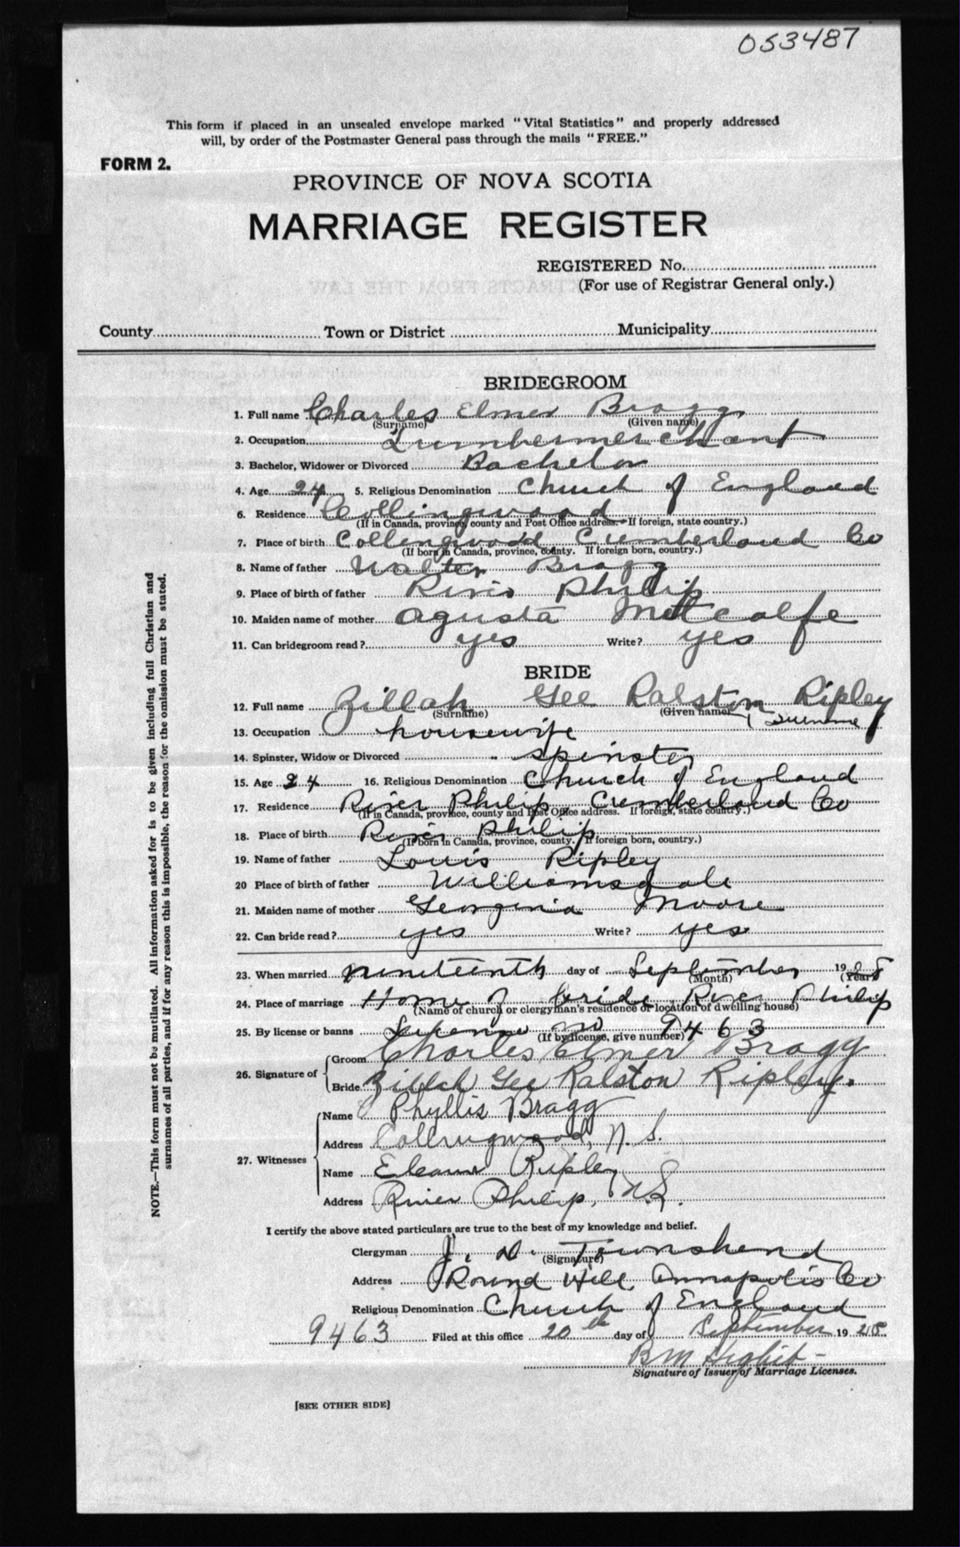 053487
This form if placed in an unsealed envelope marked "Vital Statistics" and properly addressed
will, by order of the Postmaster General pass through the mails "FREE."
FORM 2.
PROVINCE OF NOVA SCOTIA
MARRIAGE REGISTER
REGISTERED No.
(For use of Registrar General only.)
County Town or District Municipality
BRIDEGROOM
1. Full name Charles Elmer Bragg
(Surname) (Given name)
2. Occupation Lumbermerchant
3. Bachelor, Widower or Divorced Bachelor
4. Age 24 5. Religious Denomination Church of England
6. Residence Collingwood
(If in Canada, province, county and Post Office address. If foreign, state country.)
7. Place of birth Collingwood Cumberland Co
(If born in Canada, province, county. If foreign born, country.)
8. Name of father Walter Bragg
9. Place of birth of father River Philip
10. Maiden name of mother Agusta Metcalfe
11. Can bridegroom read? yes Write? yes
BRIDE
12. Full name Zillah Gee Ralston Ripley
(Surname) (Given name) (Surname
13. Occupation housewife
14. Spinster, Widow or Divorced spinster
15. Age 24 16. Religious Denomination Church of England
17. Residence River Philip Cumberland Co
(If in Canada, province, county and Post Office address. If foreign, state country.)
18. Place of birth River Philip
(If born in Canada, province, county. If foreign born, country.)
19. Name of father Louis Ripley
20 Place of birth of father Williamsdale
21. Maiden name of mother Georginia Moore
22. Can bride read? yes Write? yes
23. When married nineteenth day of September 1928
(Month) (Year)
24. Place of marriage Home of bride River Philip
(Name of church or clergyman's residence or location of dwelling house)
25. By license or banns License no 9463
(If by license, give number)
26. Signature of
Groom Charles Elmer Bragg
Bride Zillah Gee Ralston Ripley.
27. Witnesses
Name Phyllis Bragg
Address Collingwood, N.S.
Name Eleanor Ripley
Address River Philip, N.S.
I certify the above stated particulars are true to the best of my knowledge and belief.
Clergyman J. D. Townshend
(Signature)
Address Round Hill Annapolis Co
Religious Denomination Church of England
9463 Filed at this office 20th day of September 1928
B M
Signature of Issuer of Marriage Licenses.
[SEE OTHER SIDE]
NOTE.—This form must not be mutilated. All information asked for is to be given including full Christian and
surnames of all parties, and if for any reason this is impossible, the reason for the omission must be stated.